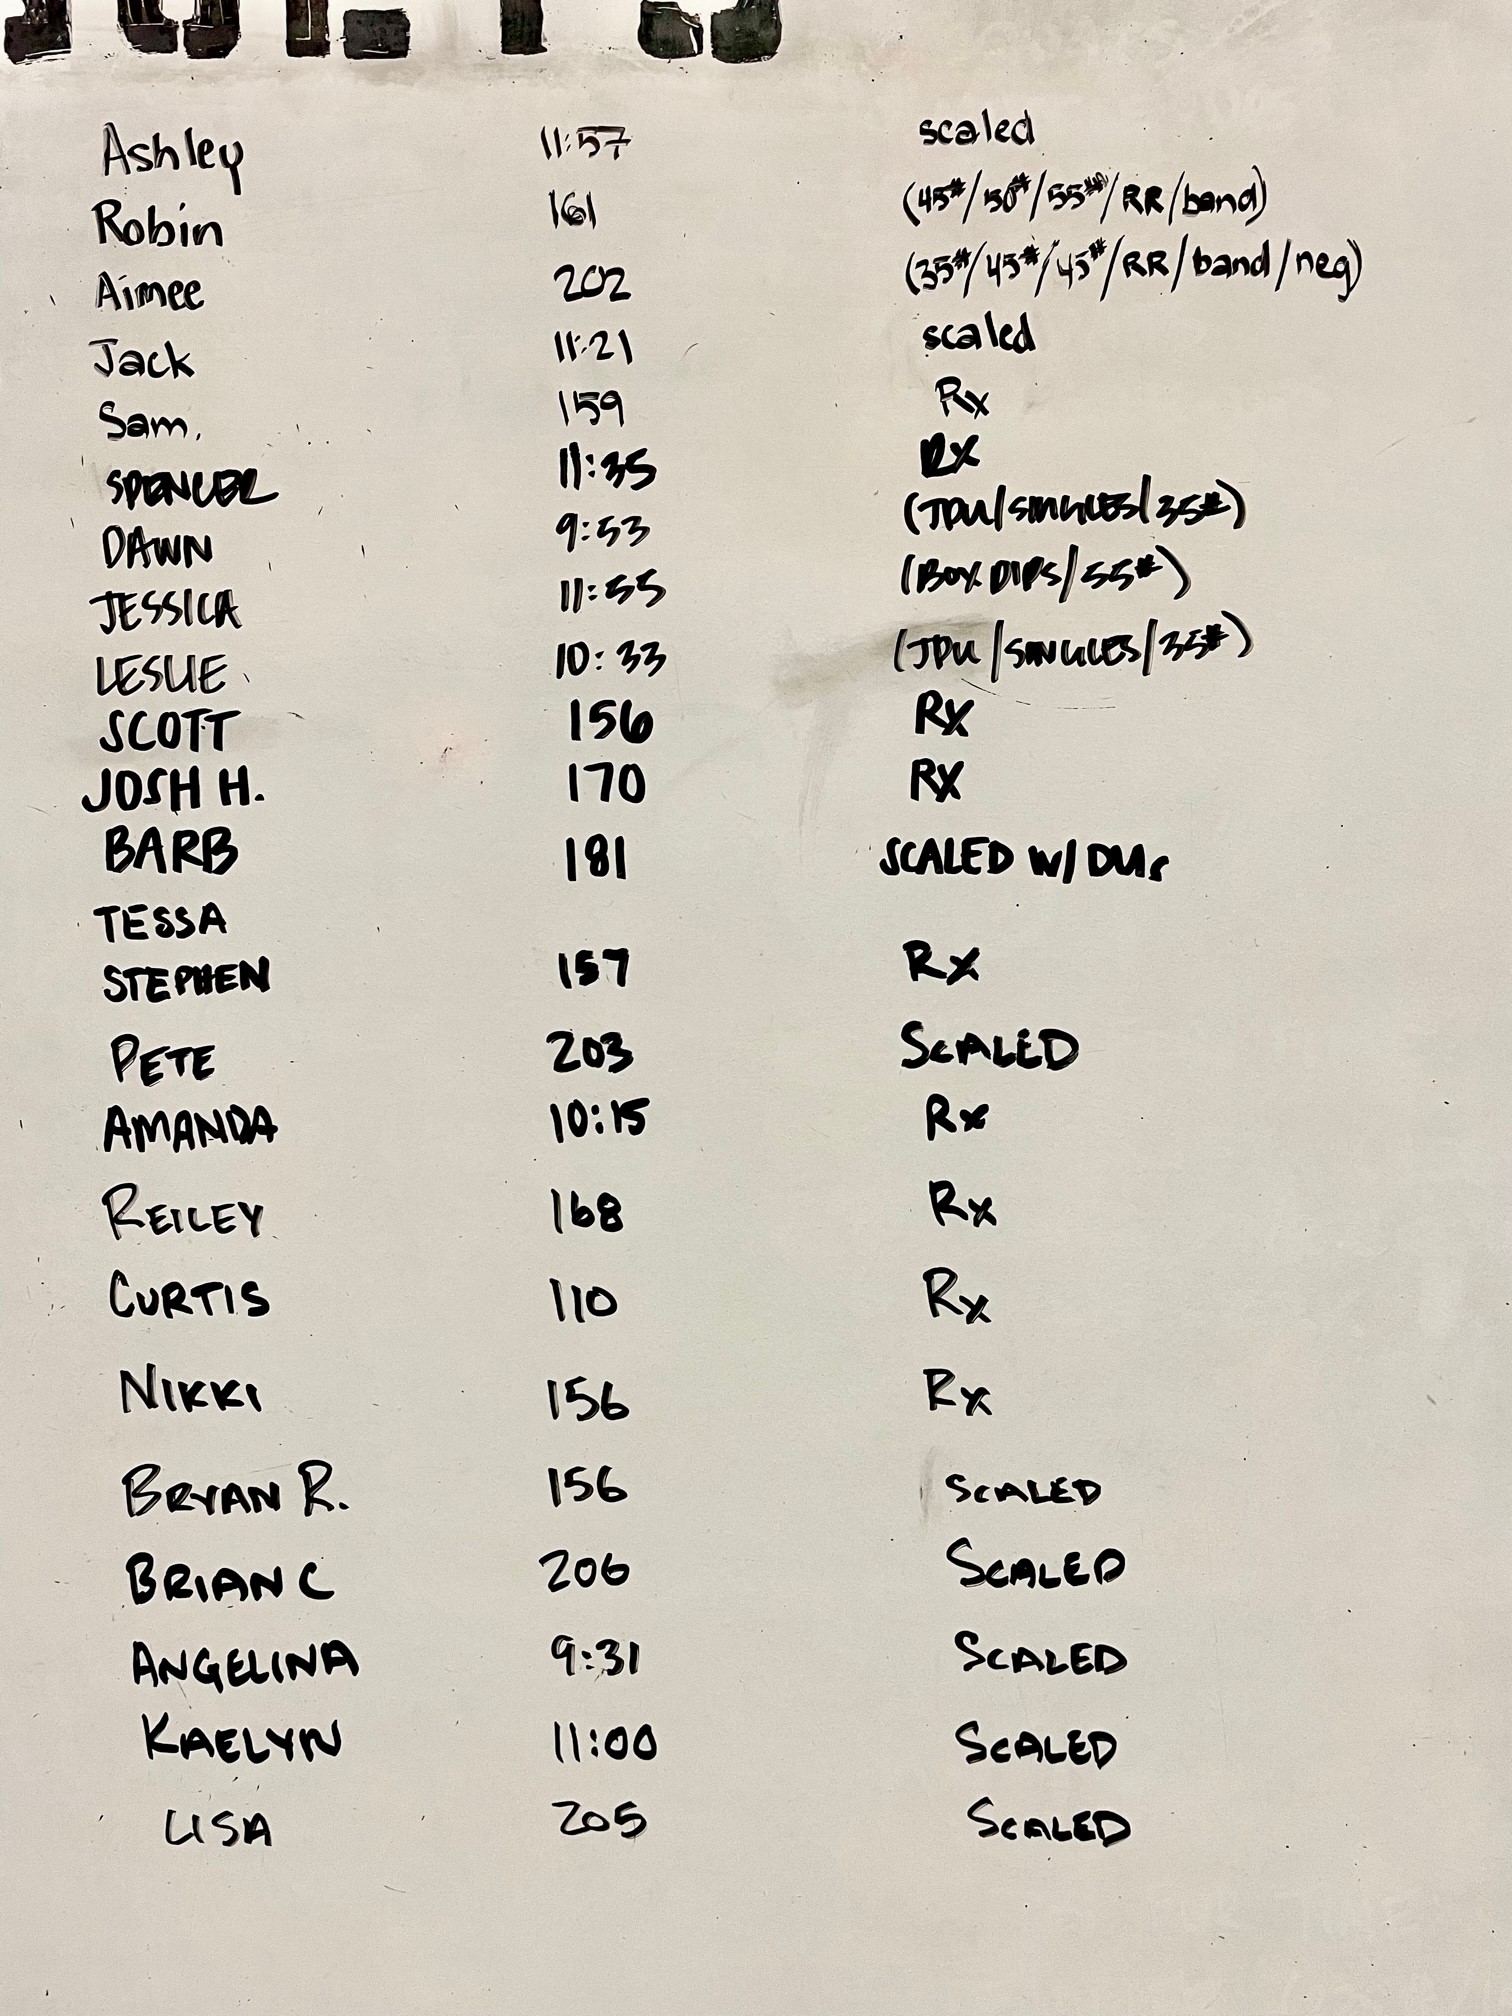 Ashley 11:57 scaled
Robin 161 (45#/50#/55#/RR/band)
Aimee 202 (35#/45#/45#/RR/band/neg)
Jack 11:21 scaled
Sam. 159 Rx
SPENCER 11:35 RX
DAWN 9:53 (JPU/SINGLES/35#)
JESSICA 11:55 (BOX DIPS/55#)
LESLIE 10:33 (JPU/SINGLES/35#)
SCOTT 156 RX
JOSH H. 170 RX
BARB 181 SCALED W/ DUs
TESSA
STEPHEN 157 RX
PETE 203 SCALED
AMANDA 10:15 Rx
REILEY 168 Rx
CURTIS 110 Rx
NIKKI 156 Rx
BRYAN R. 156 SCALED
BRIAN C 206 SCALED
ANGELINA 9:31 SCALED
KAELYN 11:00 SCALED
LISA 205 SCALED